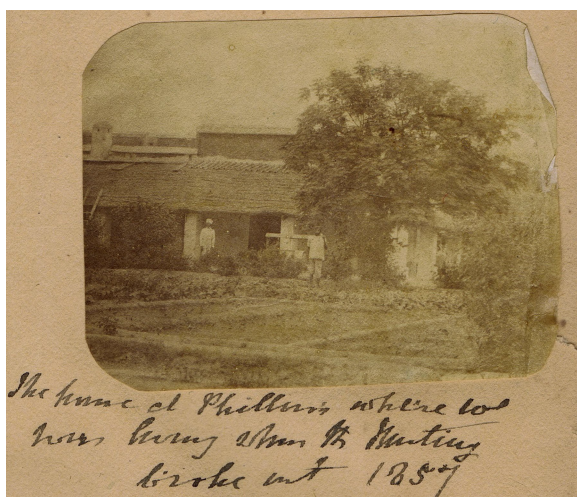 The house at Phillour where we
were living when the Mutiny
broke out 1857